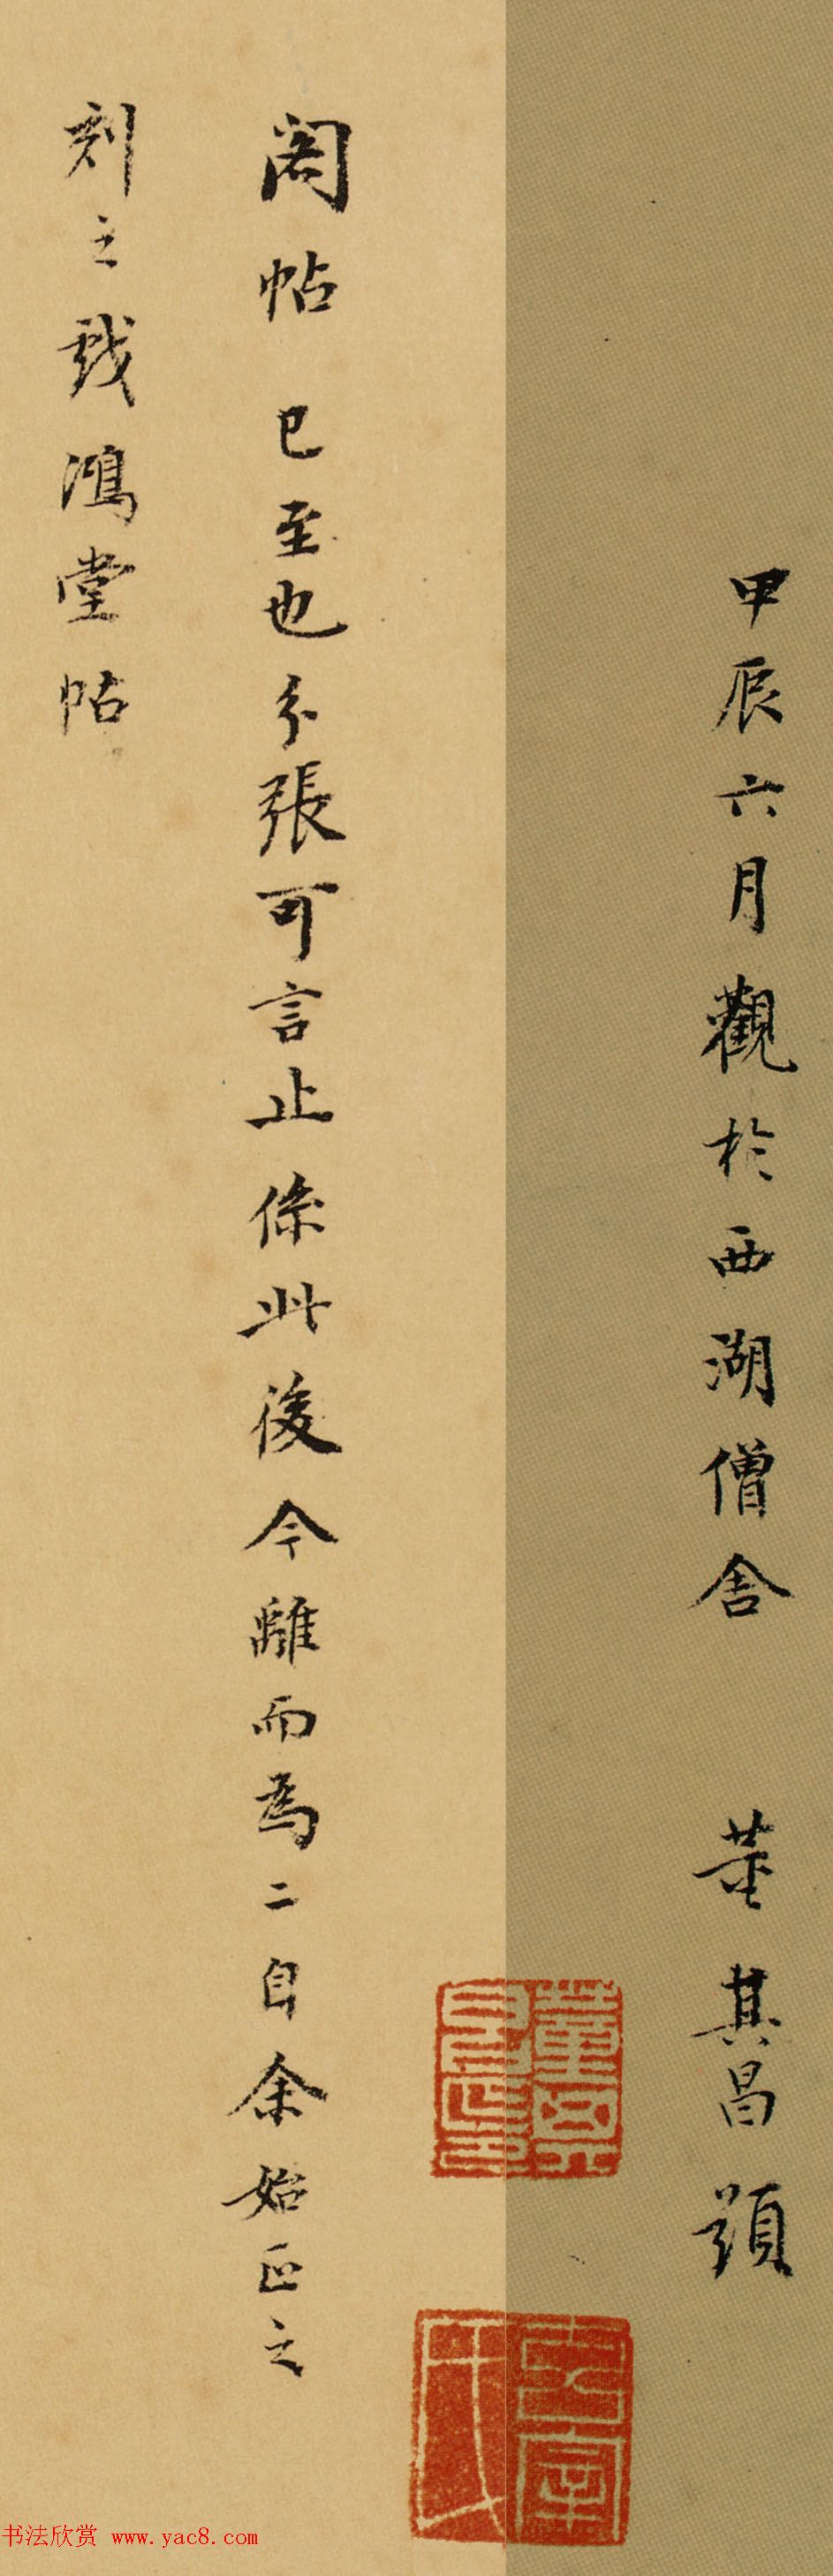 甲辰六月觀於西湖僧舍 董其昌題
閣帖 已至也分張可言止係此後今離而為二自余始正之
刻之戲鴻堂帖
书法欣赏 www.yac8.com